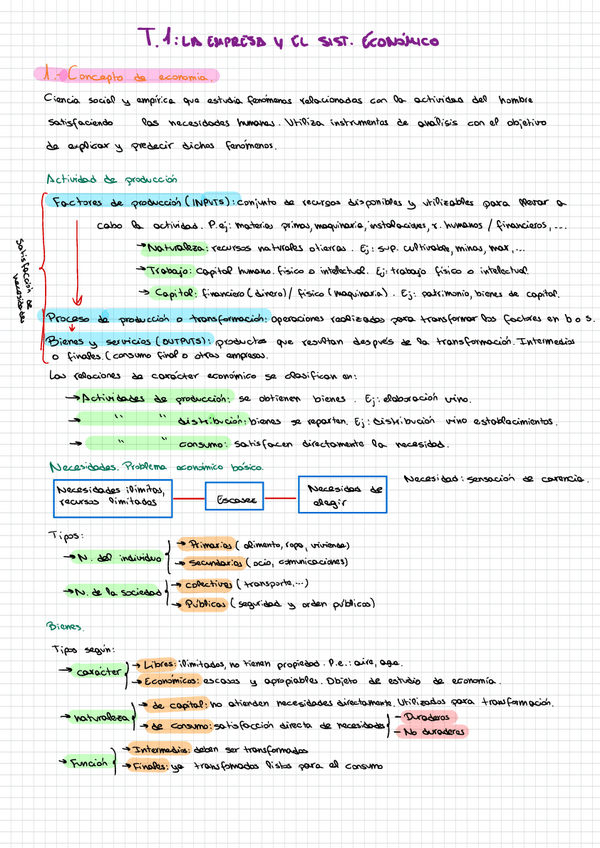 T.1: LA EMPRESA Y EL SIST. ECONÓMICO
1.- Concepto de economía.
Ciencia social y empírica que estudia fenómenos relacionadas con la actividad del hombre
satisfaciendo las necesidades humanas. Utiliza instrumentos de análisis con el objetivo
de explicar y predecir dichos fenómenos.
Actividad de producción
Factores de producción (INPUTS): conjunto de recursos disponibles y utilizables para llevar a
cabo la actividad. P.ej: materias primas, maquinaria, instalaciones, r. humanos / financieros, ...
→ Naturaleza: recursos naturales o tierras. Ej: sup. cultivable, minas, mar, ...
→ Trabajo: Capital humano. físico o intelectual. Ej: trabajo físico o intelectual.
→ Capital: financiero (dinero) / físico (maquinaria). Ej: patrimonio, bienes de capital.
Satisfacción de
necesidades
Proceso de producción o transformación: operaciones realizadas para transformar los factores en b o s.
Bienes y servicios (OUTPUTS): productos que resultan después de la transformación. Intermedios
o finales. (consumo final o otras empresas.
Las relaciones de carácter económico se clasifican en:
→ Actividades de producción: se obtienen bienes. Ej: elaboración vino.
→ " " distribución: bienes se reparten. Ej: distribución vino establecimientos.
→ " " consumo: satisfacen directamente la necesidad.
Necesidades. Problema económico básico.
Necesidades ilimitas,
recursos limitados
Escasez
Necesidad de
elegir
Necesidad: sensación de carencia.
Tipos:
→ N. del individuo
→ Primarias (alimento, ropa, vivienda)
→ Secundarias (ocio, comunicaciones)
→ N. de la sociedad
→ colectivas (transporte, ...)
→ Públicas (seguridad y orden públicos)
Bienes.
Tipos según:
→ carácter
→ Libres: ilimitados, no tienen propiedad. P.e.: aire, agua.
→ Económicos: escasos y apropiables. Objeto de estudio de economía.
→ naturaleza
→ de capital: no atienden necesidades directamente. Utilizados para transformación.
→ de consumo: satisfacción directa de necesidades
- Duraderos
- No duraderos
→ Función
→ Intermedios: deben ser transformados
→ Finales: ya transformados listos para el consumo